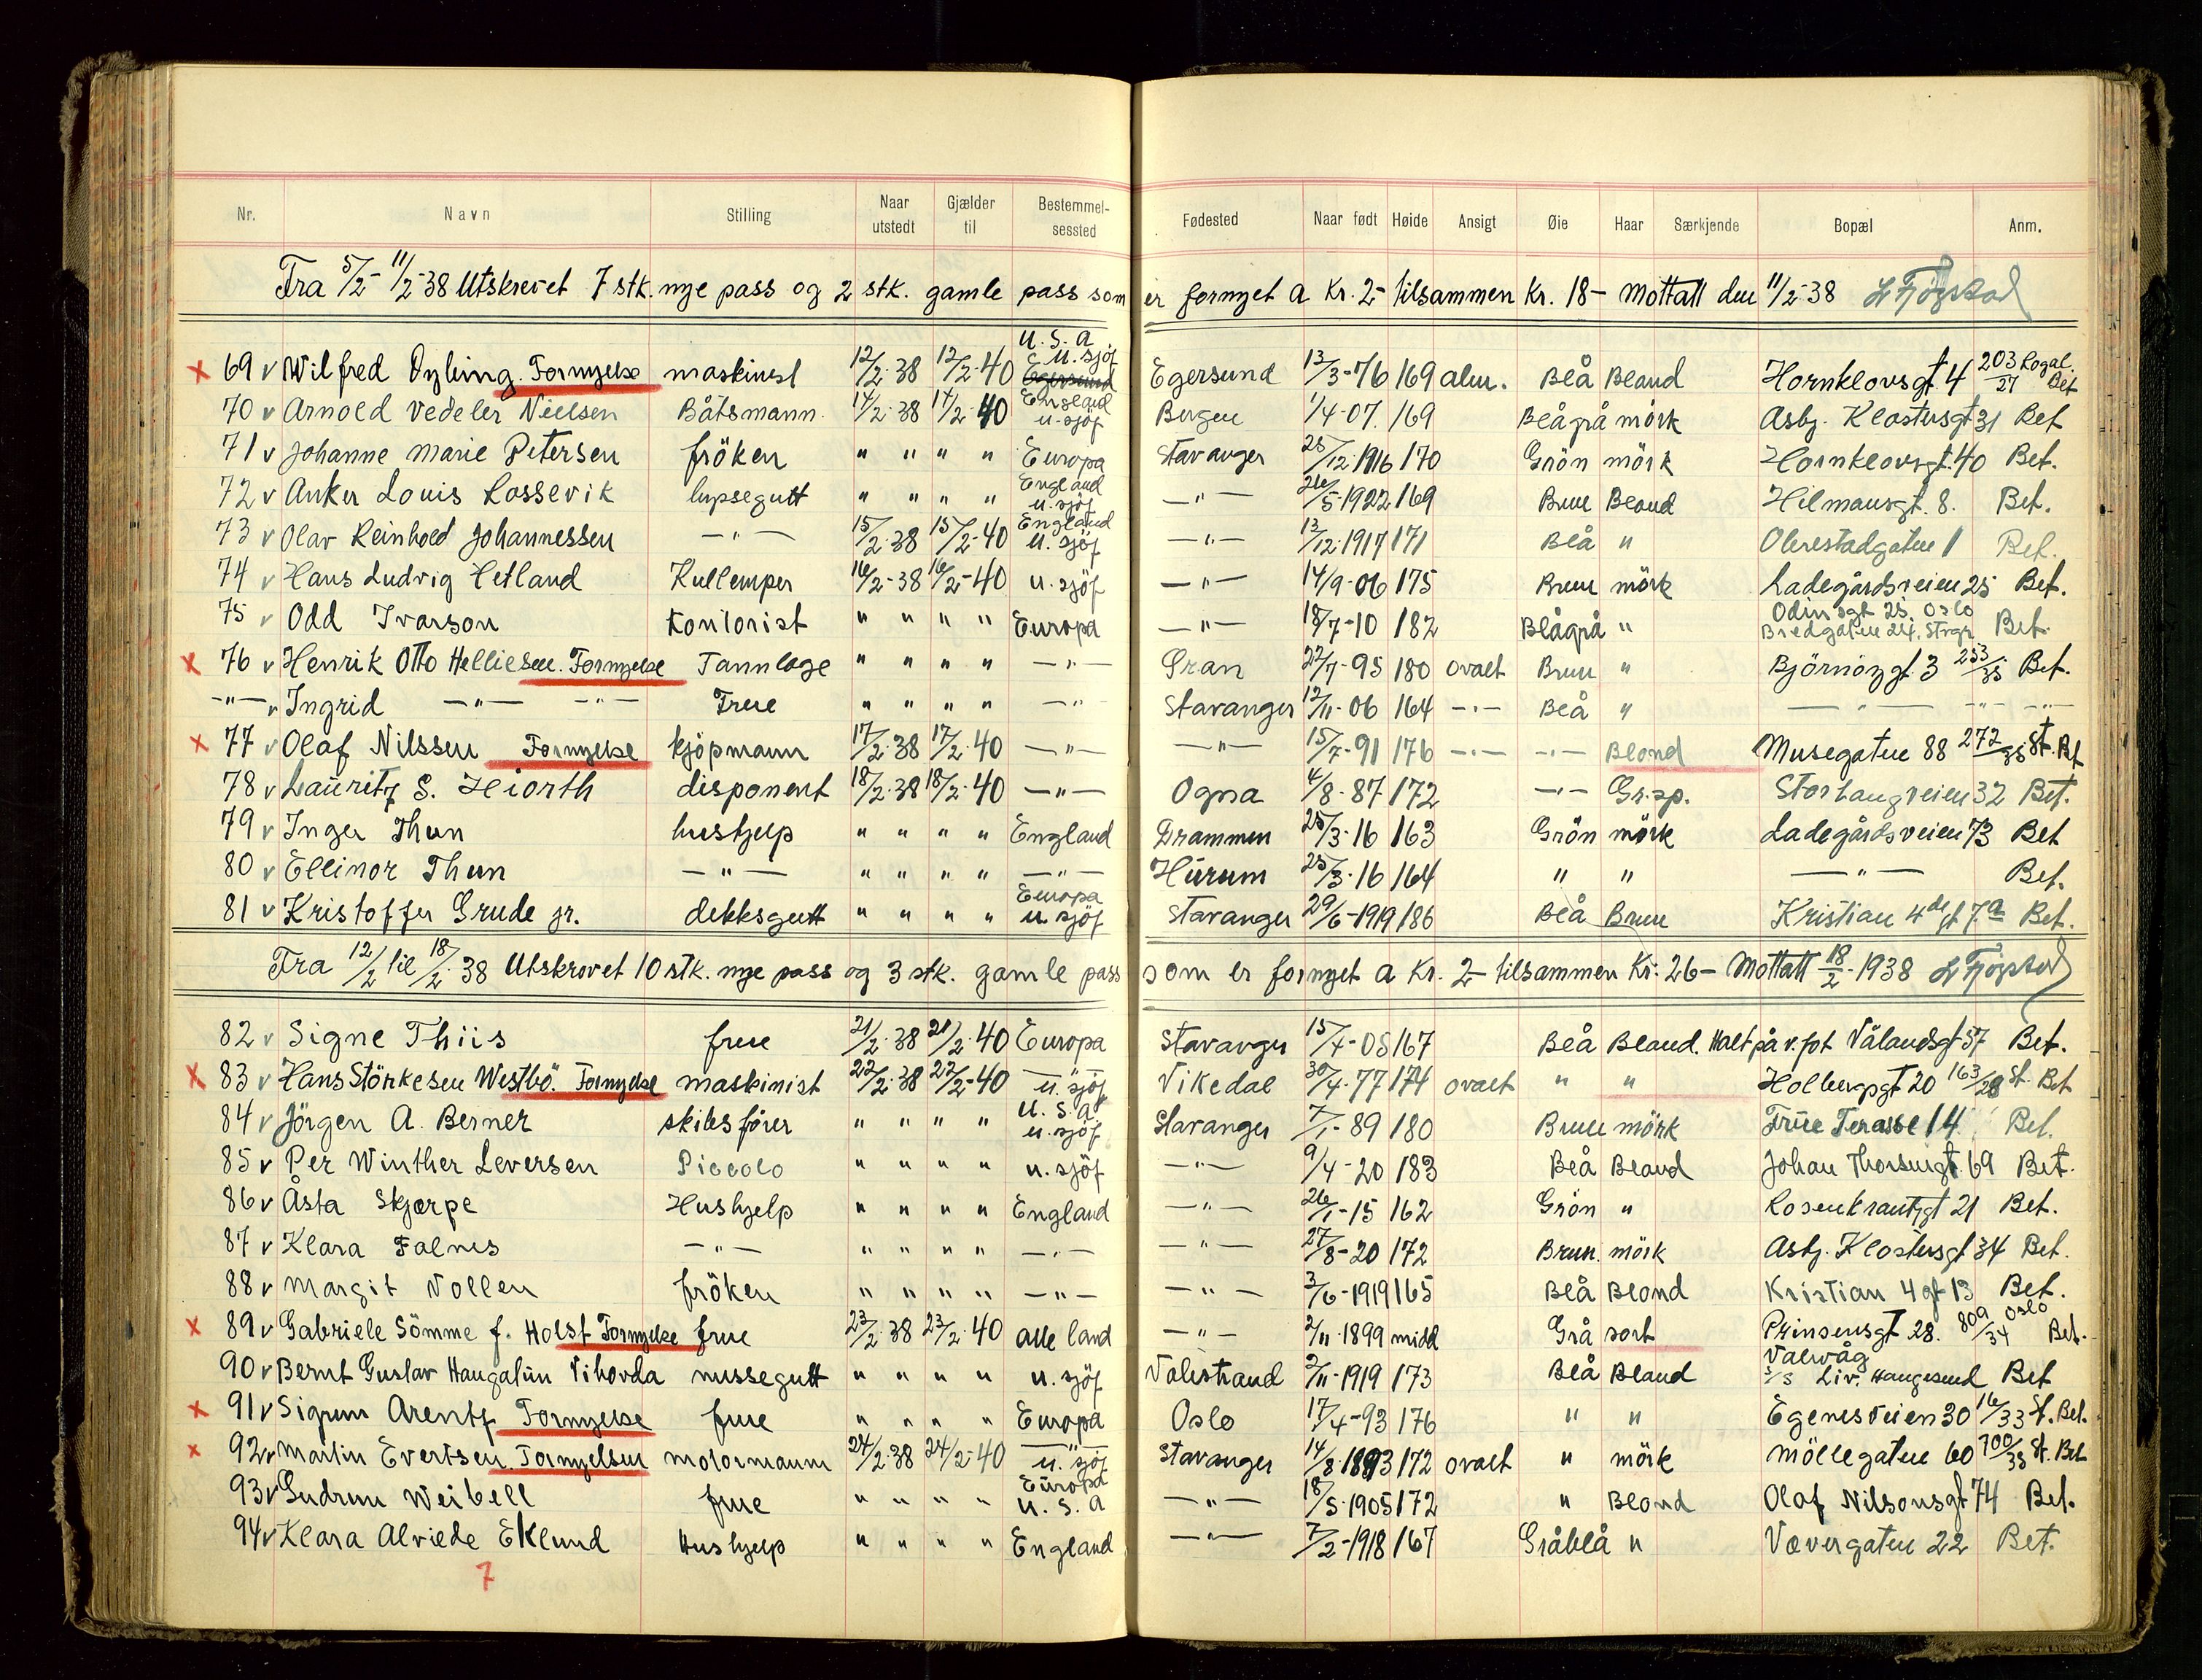 Nr. Navn Stilling Naar utstedt Gjælder til Bestemmel-sessted Fødested Naar født Høide Ansigt Øie Haar Særkjende Bopæl Anm.
Fra 5/2 - 11/2-38 Utskrevet 7 stk. nye pass og 2 stk. gamle pass som er fornyet a Kr. 2- tilsammen Kr. 18- Mottatt den 11/2-38
x 69 v Wilfred Dyling. Fornyelse maskinist 12/2-38 12/2-40 U.S.A u. sjöf Egersund Egersund 13/3-76 169 alm. Blå Blond Hornklovsgt 4 203/27 Rogal. Bet
70 v Arnold Vedeler Nielsen Båtsmann 14/2-38 14/2-40 England u. sjöf Bergen 1/4-07. 169 Blågrå mörk Asbj. Klostersgt 31 Bet
71 v Johanne Marie Petersen fröken " " " " Europa Stavanger 28/12-1916 170 Grön mörk Hornklovsgt. 40 Bet.
72 v Anker Louis Lossevik " " " " England u. sjöf —"— 26/5-1922 169 Brun Blond Hilmansgt. 8. Bet.
73 v Olav Reinhold Johannessen —"— 15/2-38 15/2-40 England u. sjöf —"— 13/12-1917 171 Blå " 1 Bet.
74 v Hans Ludvig Hetland Kullemper 16/2-38 16/2-40 u. sjöf —"— 14/9-06 175 Brun mörk Ladegårdsveien 25 Bet.
75 v Odd Ivarson Kontorist " " " " Europa —"— 18/7-10 182 Blågrå " Odinsgt 25. Oslo Bredgaten 24, Stvgr. Bet.
x 76 v Henrik Otto Helliesen. Fornyelse Tannlæge " " " " —"— Gran 22/7-95 180 ovalt Brun " Björnöygt. 3 253/35 Bet.
—"— v Ingrid —"— —"— Frue " " " " —"— Stavanger 12/11-06 164 —"— Blå " —"— —"— —"—
x 77 v Olaf Nilssen Fornyelse kjöpmann 17/2-38 17/2-40 —"— —"— 15/7-91 176 —"— —"— Blond Musegaten 88 272/35 St. Bet
78 v Lauritz S. Hiorth disponent 18/2-38 18/2-40 —"— Ogna 4/8-87 172 —"— Gr.sp. Storhaugveien 32 Bet.
79 v Inger Thun hushjelp " " " " England Drammen 25/3-16 163 Grön mörk Ladegårdsveien 73 Bet
80 v Ellinor Thun —"— " " " " —"— Hurum 25/3-16 164 " " —"— Bet.
81 v Kristoffer Grude jr. dekksgutt " " " " Europa u. sjöf Stavanger 29/6-1919 186 Blå Brun Kristian 4de gt 7a Bet.
Fra 12/2 til 18/2-38 Utskrevet 10 stk. nye pass og 3 stk. gamle pass som er fornyet a Kr. 2- tilsammen Kr. 26- Mottatt 18/2-1938
82 v Signe Thiis frue 21/2-38 21/2-40 Europa Stavanger 15/7-05 167 Blå Blond. Halt på v. fot Vålandsgt 57 Bet.
x 83 v Hans Störkesen Westbö. Fornyelse maskinist 22/2-38 22/2-40 —"— u. sjöf Vikedal 30/4-77 174 ovalt " " Holbergsgt 20 163/28 St. Bet
84 v Jörgen A. Berner skibsförer " " " " U.S.A u. sjöf Stavanger 7/1-89 180 Brun mörk Frue Terasse 14 Bet.
85 v Per Winther Leversen Piccolo " " " " u. sjöf —"— 9/4-20 183 Blå Blond Johan Thorsensgt. 69 Bet.
86 v Åsta Skjærpe Hushjelp " " " " England —"— 26/1-15 162 Grön " Rosenkrantzgt 21 Bet.
87 v Klara Falnes —"— " " " " —"— —"— 27/8-20 172 Brun. mörk Asbj. Klostersgt 34 Bet.
88 v Margit Vollen fröken " " " " —"— —"— 3/6-1919 165 Blå Blond Kristian 4 gt 13 Bet.
x 89 v Gabriele Sömme f. Holst Fornyelse frue 23/2-38 23/2-40 alle land —"— 2/11-1899 midd Grå sort Prinsensgt 28. 809/34 Oslo Bet.
90 v Bernt Gustav Haugalun Vihovda messegutt " " " " u. sjöf Valestrand 2/11-1919 173 Blå Blond Valevåg s/s Liv. Haugesund Bet
x 91 v Sigrun Arentz Fornyelse frue " " " " Europa Oslo 17/4-93 176 " " Egenesveien 30 16/33 St. Bet.
x 92 v Martin Evertsen. Fornyelsen motormann 24/2-38 24/2-40 —"— u. sjöf Stavanger 14/8-1893 172 ovalt " mörk Möllegaten 60 700/35 St. Bet
93 v Gudrun Weibell frue " " " " Europa U.S.A —"— 18/5-1905 172 " Blond Olaf Nilsonsgt 74 Bet.
94 v Klara Alviede Eklund Hushjelp " " " " England —"— 7/2-1918 167 Gråblå " Vævergaten 22 Bet.
7